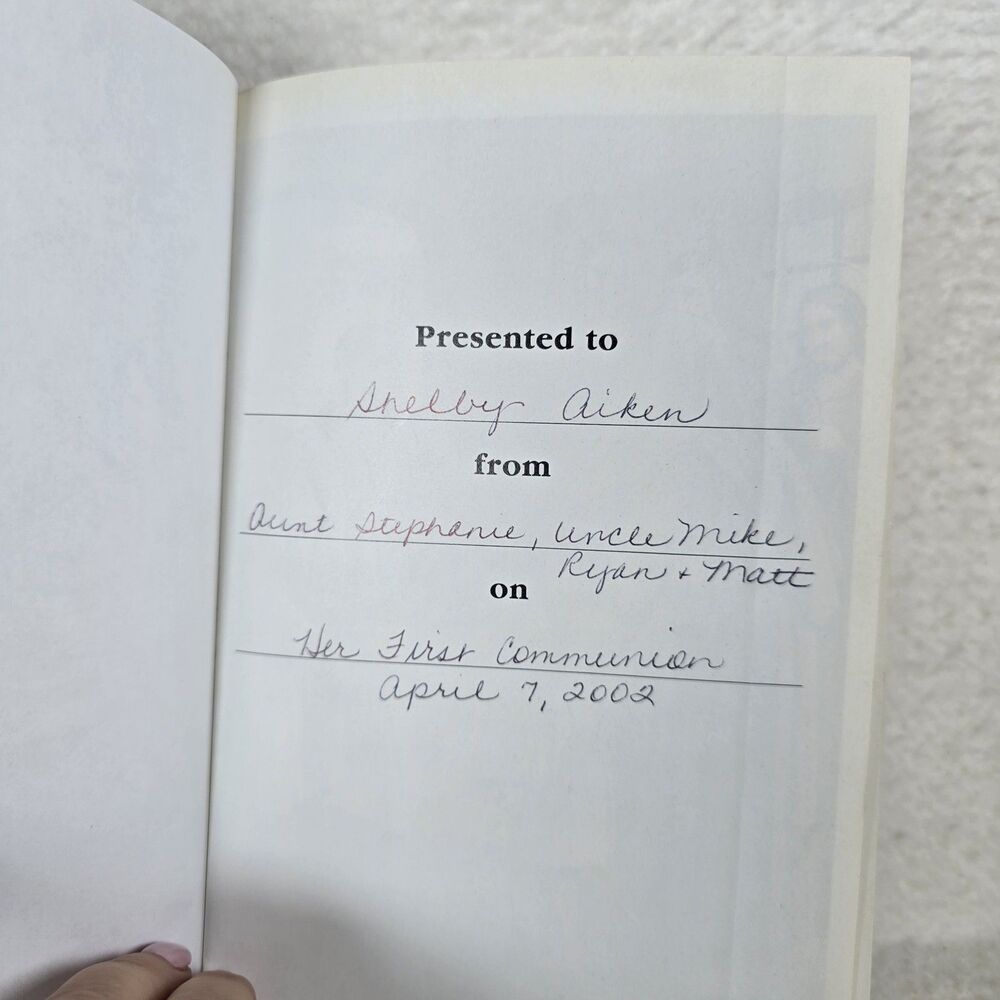 Presented to
Shelby Aiken
from
Aunt Stephanie, Uncle Mike,
Ryan + Matt
on
Her First Communion
April 7, 2002